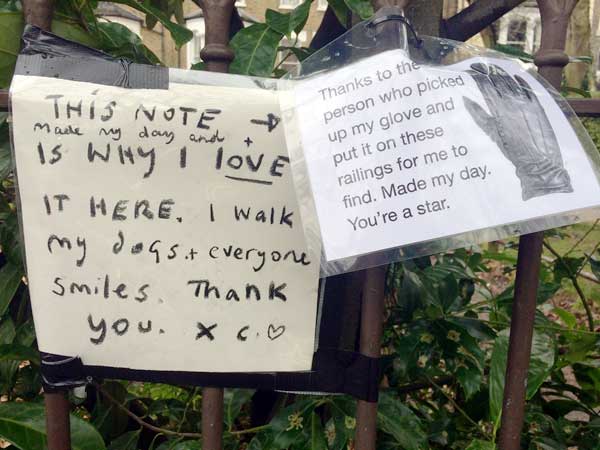 THIS NOTE →
made my day and +
IS WHY I lOVE
IT HERE. I walk
my dogs + everyone
smiles. Thank
you. x c. ♡
Thanks to the
person who picked
up my glove and
put it on these
railings for me to
find. Made my day.
You're a star.